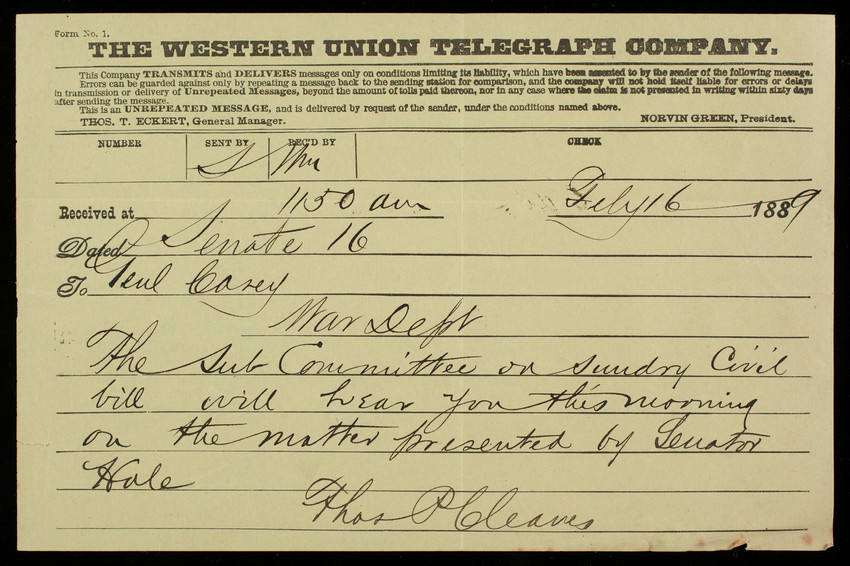 Form No. 1.
THE WESTERN UNION TELEGRAPH COMPANY.
This Company TRANSMITS and DELIVERS messages only on conditions limiting its liability, which have been assented to by the sender of the following message.
Errors can be guarded against only by repeating a message back to the sending station for comparison, and the company will not hold itself liable for errors or delays
in transmission or delivery of Unrepeated Messages, beyond the amount of tolls paid thereon, nor in any case where the claim is not presented in writing within sixty days
after sending the message.
This is an UNREPEATED MESSAGE, and is delivered by request of the sender, under the conditions named above.
THOS. T. ECKERT, General Manager. NORVIN GREEN, President.
NUMBER SENT BY REC'D BY CHECK
Received at 1150 am Feby 16 1889
Dated Senate 16
To Genl Casey
War Dept
The Sub Committee on Sundry Civil
bill will hear you this morning
on the matter presented by Senator
Hale
Thos P Cleaves